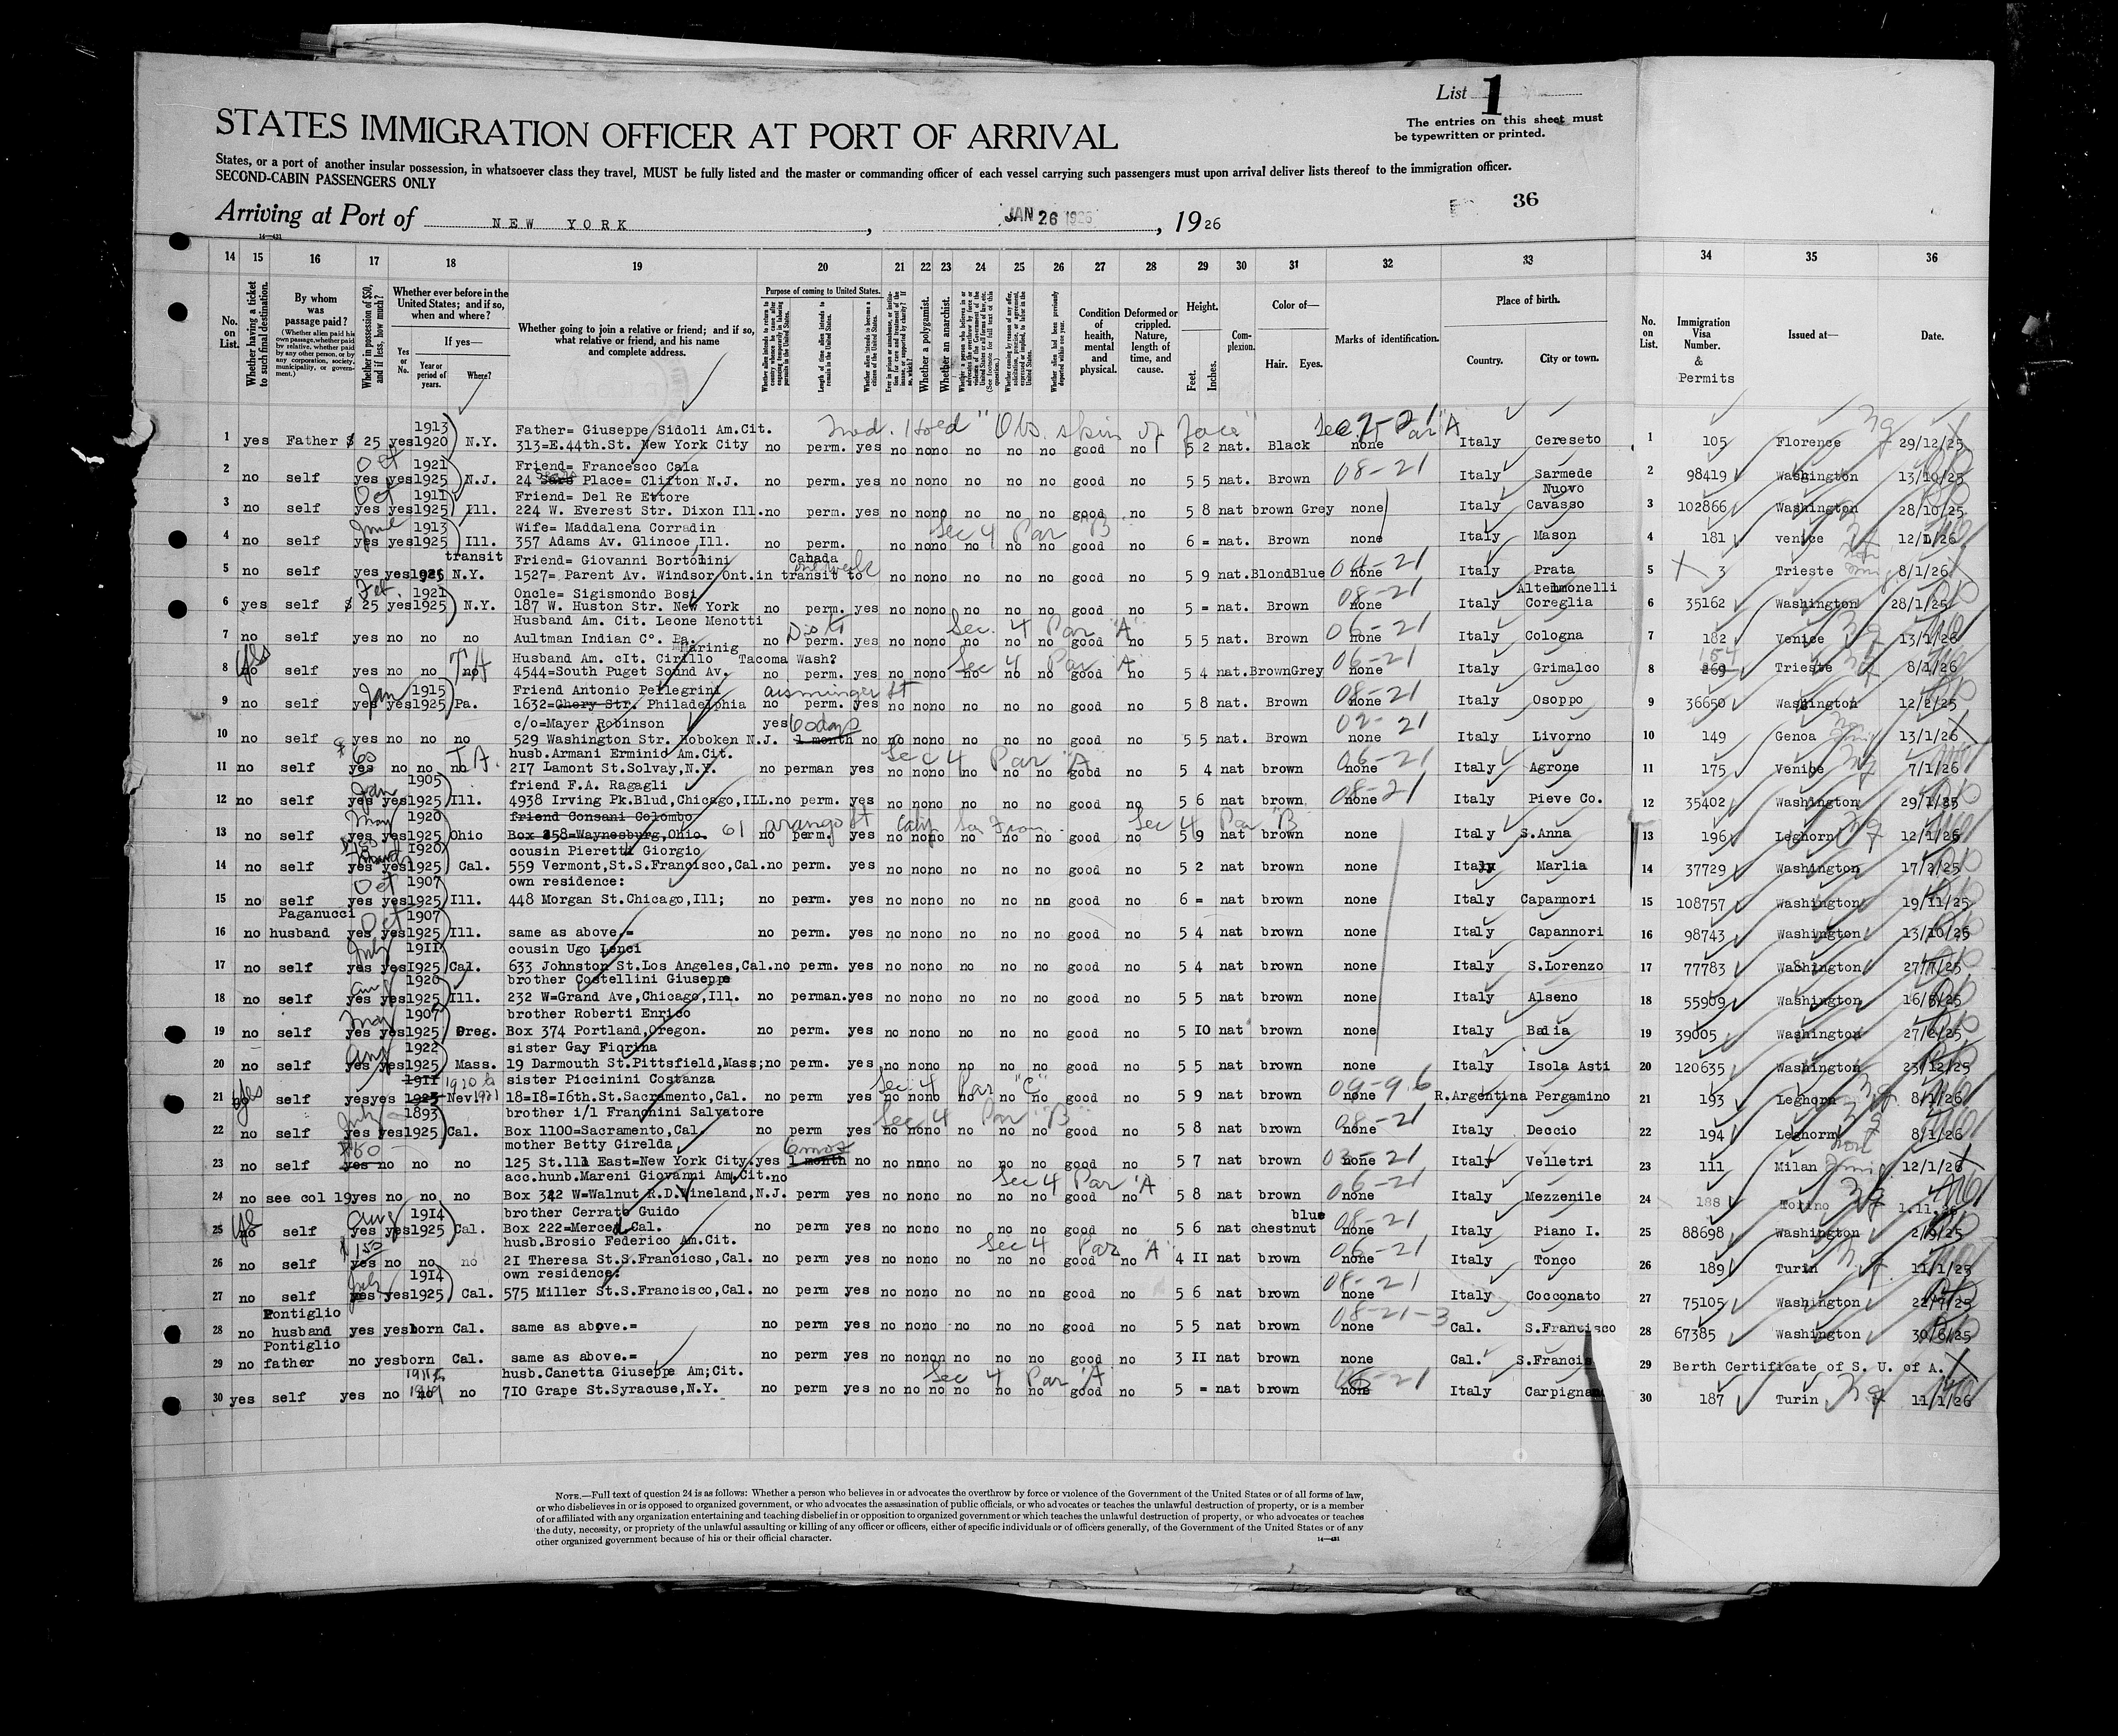 List 1
The entries on this sheet must
be typewritten or printed.
STATES IMMIGRATION OFFICER AT PORT OF ARRIVAL
States, or a port of another insular possession, in whatsoever class they travel, MUST be fully listed and the master or commanding officer of each vessel carrying such passengers must upon arrival deliver lists thereof to the immigration officer.
SECOND-CABIN PASSENGERS ONLY
36
Arriving at Port of NEW YORK, JAN 26 1926, 1926
14—431
14 15 16 17 18 19 20 21 22 23 24 25 26 27 28 29 30 31 32 33 34 35 36
No. on List.
Whether having a ticket to such final destination.
By whom was passage paid?
(Whether alien paid his own passage, whether paid by relative, whether paid by any other person, or by any corporation, society, municipality, or government.)
Whether in possession of $50, and if less, how much?
Whether ever before in the United States; and if so, when and where?
Yes or No.
If yes—
Year or period of years.
Where?
Whether going to join a relative or friend; and if so, what relative or friend, and his name and complete address.
Purpose of coming to United States.
Length of time alien intends to remain in the United States.
Whether alien intends to become a citizen of the United States.
Whether a polygamist.
Whether an anarchist.
Condition of health, mental and physical.
Deformed or crippled. Nature, length of time, and cause.
Height.
Feet. Inches.
Complexion.
Color of—
Hair. Eyes.
Marks of identification.
Place of birth.
Country. City or town.
No. on List.
Immigration Visa Number. & Permits
Issued at—
Date.
1913 Father= Giuseppe Sidoli Am.Cit. Med. Hold "Obs. skin of face"
1 yes Father $ 25 yes 1920 N.Y. 313=E.44th.St. New York City no perm. yes no no no no no no good no 5 2 nat. Black none Italy Cereseto 1 105 Florence 29/12/25
Oct 1921 Friend= Francesco Cala
2 no self yes yes 1925 N.J. 24 Place= Clifton N.J. no perm. yes no no no no no no good no 5 5 nat. Brown 08-21 Italy Sarmede 2 98419 Washington 13/10/25
Oct 1911 Friend= Del Re Ettore Nuovo
3 no self yes yes 1925 Ill. 224 W. Everest Str. Dixon Ill. no perm. yes no no no no no no good no 5 8 nat brown Grey none Italy Cavasso 3 102866 Washington 28/10/25
June 1913 Wife= Maddalena Corradin Sec 4 Par "B"
4 no self yes yes 1925 Ill. 357 Adams Av. Glincoe, Ill. no perm. no no no no no no good no 6 = nat. Brown none Italy Mason 4 181 Venice 12/1/26
transit Friend= Giovanni Bortolini Canada one week
5 no self yes yes 1925 N.Y. 1527= Parent Av. Windsor Ont. in transit to no no no no no no good no 5 9 nat. Blond Blue none Italy Prata 5 3 Trieste 8/1/26
1921 Oncle= Sigismondo Bosi 08-21
6 yes self $ 25 yes 1925 N.Y. 187 W. Huston Str. New York no perm. yes no no no no no no good no 5 = nat. Brown none Italy Coreglia 6 35162 Washington 28/1/25
Husband Am. Cit. Leone Menotti Sec. 4 Par "A" 06-21
7 no self yes no no no Aultman Indian Co. Pa. no perm. yes no no no no no no good no 5 5 nat. Brown none Italy Cologna 7 182 Venice 13/1/26
Yes Husband Am. cIt. Cirillo Marinig Tacoma Wash? Sec 4 Par "A" 06-21 154
8 no self yes no no not 4544=South Puget Sound Av. no perm. yes no no no no no no good no 5 4 nat. Brown Grey none Italy Grimalco 8 269 Trieste 8/1/26
Jan 1915 Friend Antonio Pellegrini aisminger St 08-21
9 no self yes yes 1925 Pa. 1632=Chery Str. Philadelphia no perm. yes no no no no no no good no 5 8 nat. Brown none Italy Osoppo 9 36650 Washington 12/2/25
c/o=Mayer Robinson yes 60 days 02-21
10 no self yes no no no 529 Washington Str. Hoboken N.J. 1 month no no no no no no no good no 5 5 nat. Brown none Italy Livorno 10 149 Genoa 13/1/26
$ 60 husb.Armani Erminid Am.Cit. Sec 4 Par "A" 06-21
11 no self yes no no no 217 Lamont St.Solvay,N.Y. no perman yes no no no no no no good no 5 4 nat brown none Italy Agrone 11 175 Venice 7/1/26
Jan 1905 friend F.A. Ragagli 08-21
12 no self yes yes 1925 Ill. 4938 Irving Pk.Blud,Chicago,ILL. no perm. yes no no no no no no good no 5 6 nat brown none Italy Pieve Co. 12 35402 Washington 29/1/25
May 1920 friend Consani Colombo 61 arango St Calif San Fran. Sec 4 Par "B"
13 no self yes yes 1925 Ohio Box 258=Waynesburg,Ohio. no perm. yes no no no no no no good no 5 9 nat brown none Italy S.Anna 13 196 Leghorn 12/1/26
1920 cousin Pieretti Giorgio
14 no self yes yes 1925 Cal. 559 Vermont,St.S.Francisco,Cal. no perm. yes no no no no no no good no 5 2 nat brown none Italy Marlia 14 37729 Washington 17/2/25
Oct 1907 own residence:
15 no self yes yes 1925 Ill. 448 Morgan St.Chicago,Ill; no perm. yes no no no no no no good no 6 = nat brown none Italy Capannori 15 108757 Washington 19/11/25
Paganucci Oct 1907
16 no husband yes yes 1925 Ill. same as above.= no perm. yes no no no no no no good no 5 4 nat brown none Italy Capannori 16 98743 Washington 13/10/25
July 1911 cousin Ugo Lenci
17 no self yes yes 1925 Cal. 633 Johnston St.Los Angeles,Cal. no perm. yes no no no no no no good no 5 4 nat brown none Italy S.Lorenzo 17 77783 Washington 27/7/25
Aug 1920 brother Costellini Giuseppe
18 no self yes yes 1925 Ill. 232 W=Grand Ave,Chicago,Ill. no perman. yes no no no no no no good no 5 5 nat brown none Italy Alseno 18 55909 Washington 16/5/25
May 1907 brother Roberti Enrico
19 no self yes yes 1925 Oreg. Box 374 Portland,Oregon. no perm. yes no no no no no no good no 5 10 nat brown none Italy Badia 19 39005 Washington 27/2/25
Aug 1922 sister Gay Fiorina
20 no self yes yes 1925 Mass. 19 Darmouth St.Pittsfield,Mass; no perm. yes no no no no no no good no 5 5 nat brown none Italy Isola Asti 20 120635 Washington 23/12/25
Yes 1911 1920 to sister Piccinini Costanza Sec. 4 Par "C" 09-96
21 no self yes yes 1923 Nev 1921 18=18=16th.St.Sacramento,Cal. no perm yes no no no no no no good no 5 9 nat brown none R.Argentina Pergamino 21 193 Leghorn 8/1/26
July 1893 brother i/l Franchini Salvatore Sec 4 Par "B" 08-21
22 no self yes yes 1925 Cal. Box 1100=Sacramento,Cal. no perm yes no no no no no no good no 5 8 nat brown none Italy Deccio 22 194 Leghorn 8/1/26
$50 mother Betty Girelda 6 mos
23 no self yes no no no 125 St.111 East=New York City. yes 1 month no no no no no no no good no 5 7 nat brown none Italy Velletri 23 111 Milan 12/1/26
acc.hunb.Mareni Giovanni Am.Cit. no Sec 4 Par "A" 06-21
24 no see col 19 yes no no no Box 342 W=Walnut R.D.Vineland,N.J. perm yes no no no no no no good no 5 8 nat brown none Italy Mezzenile 24 188 1.11.26
Yes Aug 1914 brother Cerrato Guido blue 08-21
25 no self yes yes 1925 Cal. Box 222=Merced Cal. no perm yes no no no no no no good no 5 6 nat chestnut none Italy Piano I. 25 88698 Washington 2/9/25
$ 150 husb.Brosio Federico Am.Cit. Sec 4 Par "A" 06-21
26 no self yes no no no 21 Theresa St.S.Francicso,Cal. no perm yes no no no no no no good no 4 11 nat brown none Italy Tonco 26 189 Turin 11/1/25
July 1914 own residence: 08-21
27 no self yes yes 1925 Cal. 575 Miller St.S.Francisco,Cal. no perm yes no no no no no no good no 5 6 nat brown none Italy Cocconato 27 75105 Washington 22/7/25
Pontiglio 08-21-3
28 no husband yes yes born Cal. same as above.= no perm yes no no no no no no good no 5 5 nat brown none Cal. S.Francisco 28 67385 Washington 30/6/25
Pontiglio
29 no father no yes born Cal. same as above.= no perm yes no no no no no no good no 3 11 nat brown none Cal. S.Francis 29 Berth Certificate of S. U. of A.
husb.Canetta Giuseppe Am;Cit. Sec 4 Par "A" 06-21
30 yes self yes no no no 710 Grape St.Syracuse,N.Y. no perm yes no no no no no no good no 5 = nat brown none Italy Carpignan 30 187 Turin 11/1/26
NOTE.—Full text of question 24 is as follows: Whether a person who believes in or advocates the overthrow by force or violence of the Government of the United States or of all forms of law,
or who disbelieves in or is opposed to organized government, or who advocates the assassination of public officials, or who advocates or teaches the unlawful destruction of property, or is a member
of or affiliated with any organization entertaining and teaching disbelief in or opposition to organized government or which teaches the unlawful destruction of property, or who advocates or teaches
the duty, necessity, or propriety of the unlawful assaulting or killing of any officer or officers, either of specific individuals or of officers generally, of the Government of the United States or of any
other organized government because of his or their official character.
14—431